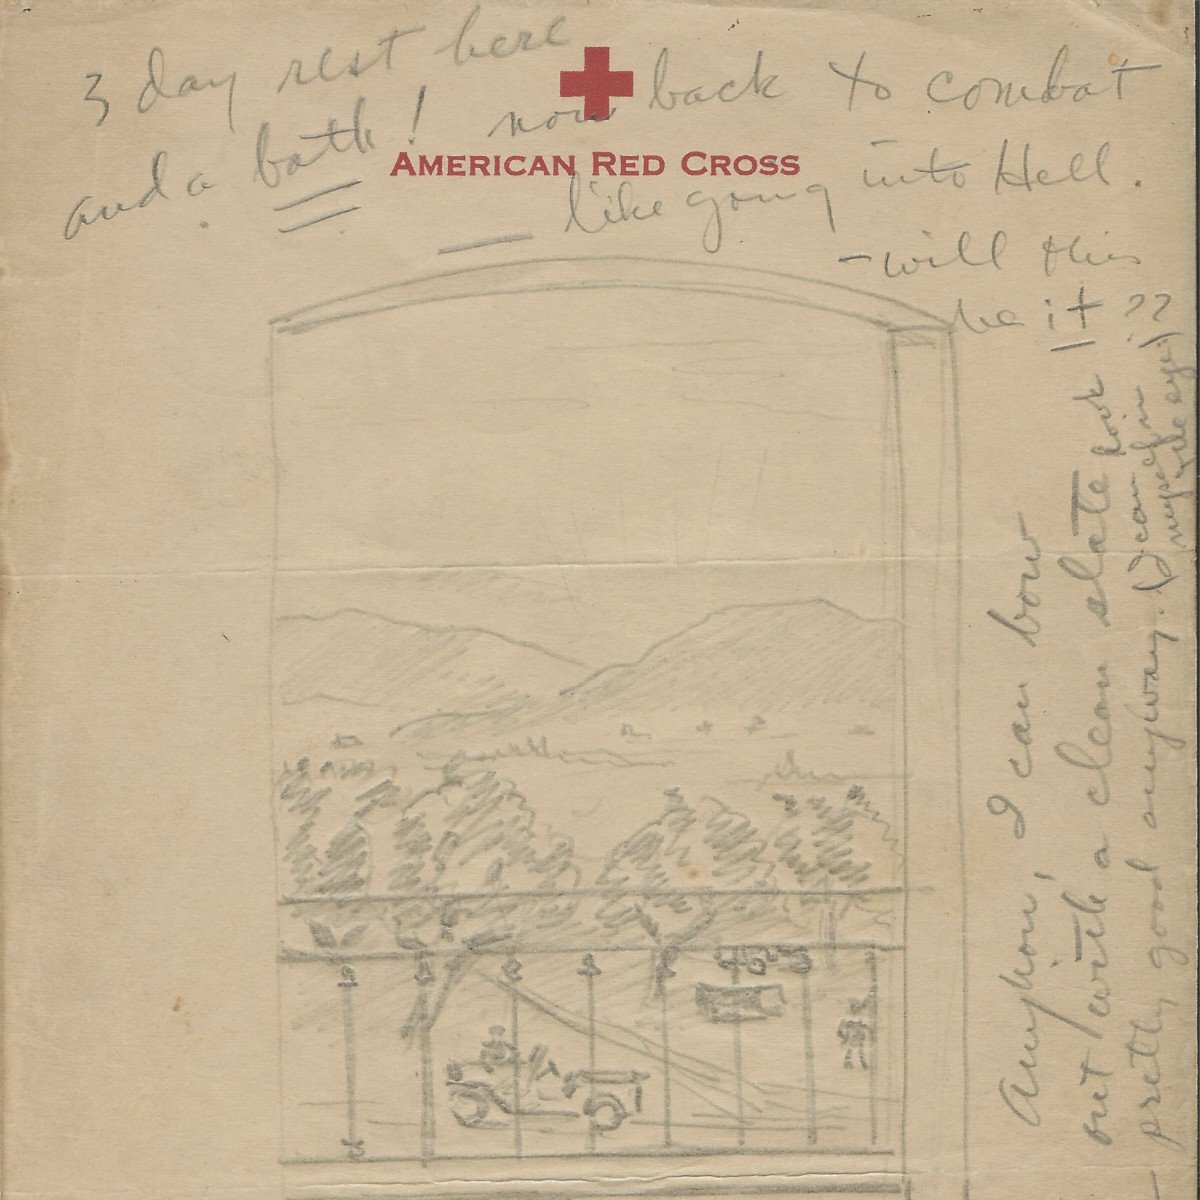 3 day rest here
and a bath! now back to combat
AMERICAN RED CROSS
— like going into Hell.
- will this
be it ??
Anyhow, I can bow
out with a clean slate
pretty good anyway. (I can
myself in
the eye)